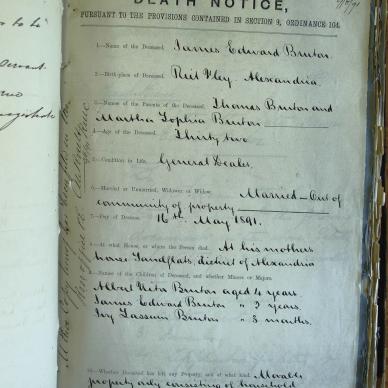 DEATH NOTICE,
PURSUANT TO THE PROVISIONS CONTAINED IN SECTION 9, ORDINANCE 104.
1.—Name of the Deceased James Edward Bruton.
2.—Birth-place of Deceased Riet Vley Alexandria
3.—Names of the Parents of the Deceased Thomas Bruton and
Martha Sophia Bruton
4.—Age of the Deceased Thirty two
5.—Condition in Life. General Dealer.
6.—Married or Unmarried, Widower or Widow. Married — Out of
community of property
7.—Day of Decease 16th May 1891.
8.—At what House, or where the Person died. At his mothers
house Sandflats, district of Alexandria
9.—Names of the Children of Deceased, and whether Minors or Majors.
Albert Bruton aged 4 years.
James Edward Bruton " 2 years.
Ivy Bruton " 8 months.
10.—Whether Deceased has left any Property, and of what kind. Movable
property only consisting of household